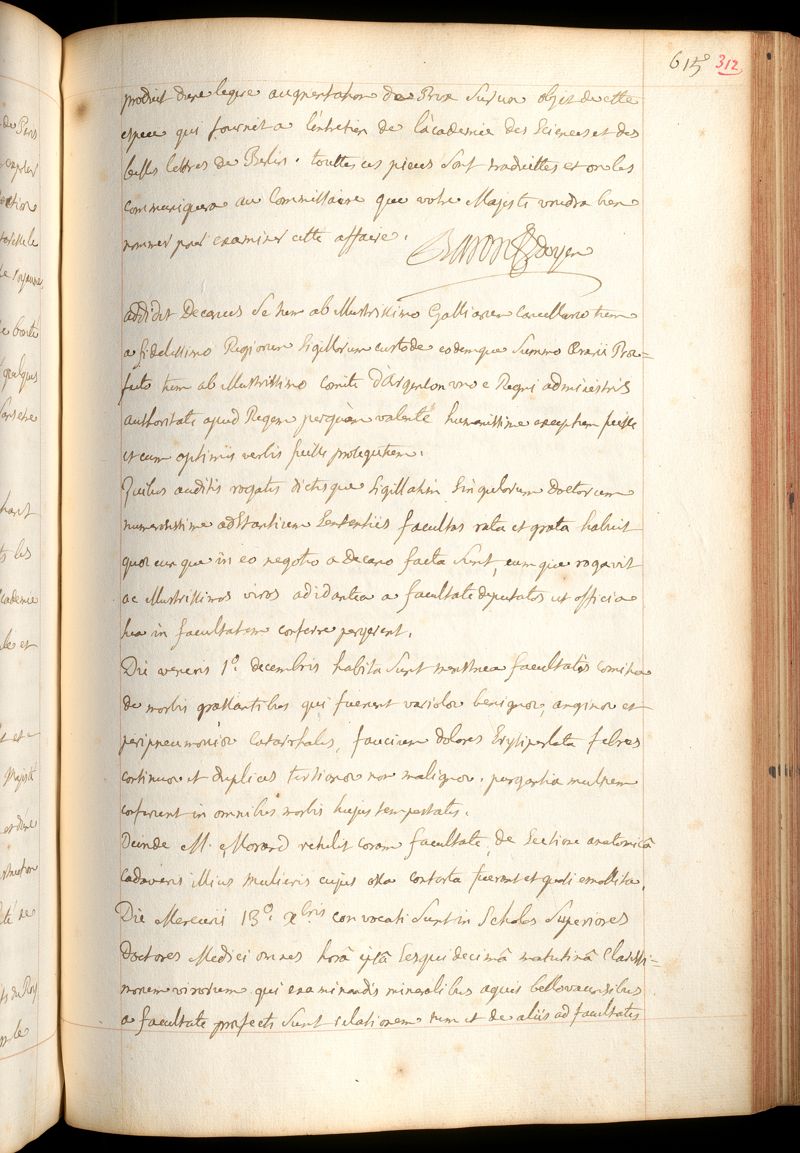 615 312
produit d'une legere augmentation de Prix sur un objet de cette
espece qui fournit a l'entretien de l'academie des Sciences et des
belles lettres de Berlin. touttes ces pieces sont traduittes et on les
communiquera au Commissaire que votre Majesté voudra bien
nommer pour examiner cette affaire. Baron Doyen
addidit Decanus se tum ab illustrissimo Galliarum Cancellario tum
a fidelissimo Regiorum sigillorum custode eodemque summo Ærarii Præ=
fecto tum ab illustrissimo comite d'Argenson uno e Regni administris
authoritate apud Regem perquàm valente humanissime exceptum fuisse
et cum optimis verbis fuisse prolequutum.
Quibus auditis rogatis dictisque sigillatim singulorum doctorum
numerosissime adstantium sententiis facultas rata et grata habuit
quæcumque in eo negotio a Decano facta sunt, eumque rogavit
ac illustrissimos viros a facultate deputatos ut officia
sua in facultatem conferre pergerent.
Die veneris 1ª. decembris habita sunt menstrua facultatis comitia
de morbis grassantibus qui fuerunt variolæ benignæ, anginæ et
peripneumoniæ catarrhales, faucium dolores Erysipelata febres
continuæ et duplices tertianæ non malignæ. purgantia multum
conferunt in omnibus morbis hujus tempestatis.
Deinde M. Morand retulit coram facultate, de sectione anatomicâ
cadaveris illius mulieris cujus ossa contorta fuerant et quasi emollita.
Die Mercurii 13ª. Xbris convocati sunt in Scholas Superiores
Doctores Medici omnes horâ sesqui decimâ matutinâ Clarissi=
morum virorum qui examinandis mineralibus aquis bellovacensibus
a facultate præfecti sunt relationem tum et de aliis ad facultatis